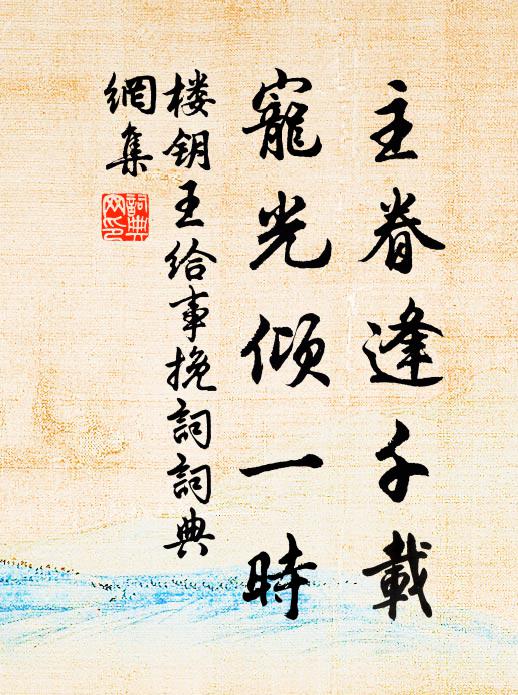 主眷逢千載
寵光傾一時
楼钥王给事挽詞詞典
網集
詞典
网印